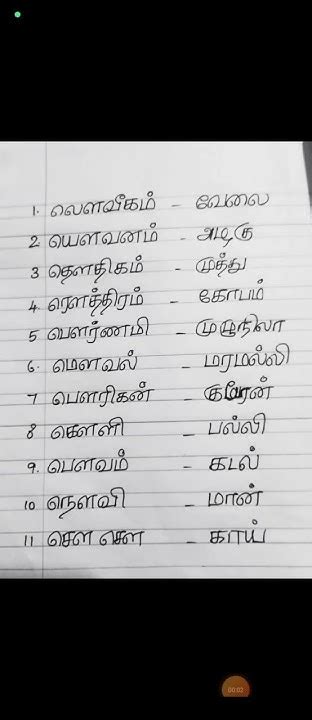 1. லௌவீகம் - வேலை
2 யௌவனம் - அழகு
3 தௌதிகம் - முத்து
4. ரௌத்திரம் - கோபம்
5 பௌர்ணமி - முழுநிலா
6. மௌவல் - மரமல்லி
7 பௌரிகன் -
8 கௌளி - பல்லி
9. பௌவம் - கடல்
10 நௌவி - மான்
11 சௌ சௌ - காய்
00:02